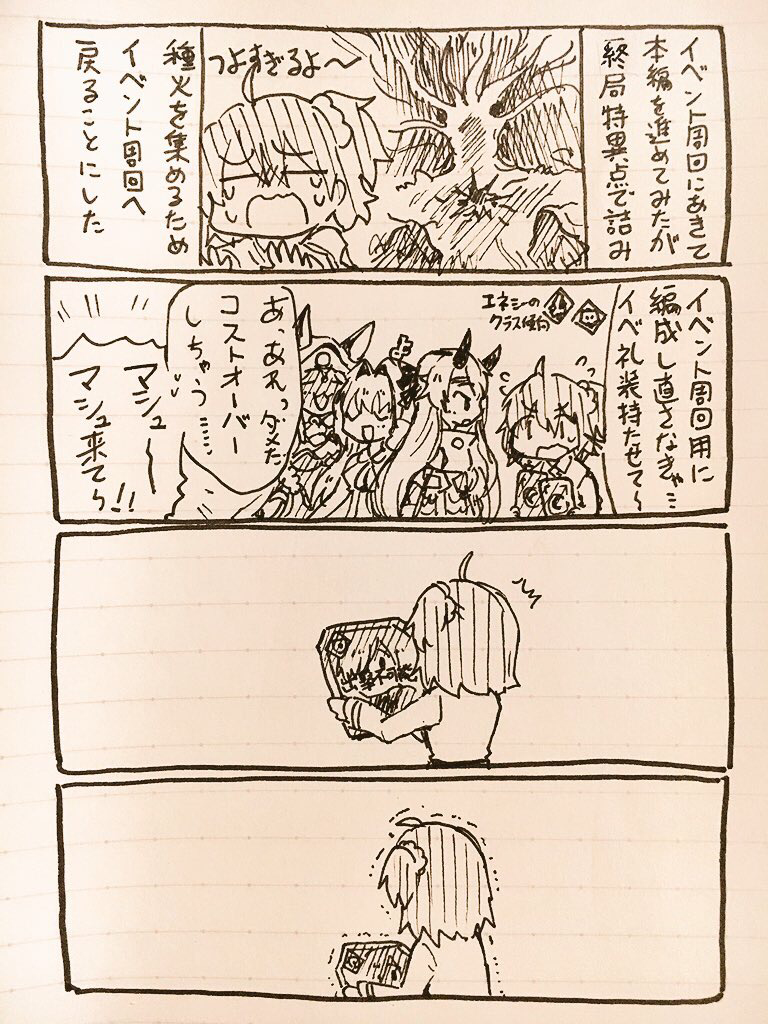 イベント周回にあきて
本編を進めてみたが
終局特異点で詰み
つよすぎるよ〜
種火を集めるため
イベント周回へ
戻ることにした
イベント周回用に
編成し直さなきゃ…
イベ礼装持たせて〜
エネミーの
クラス傾向
あっあれっダメだ
コストオーバー
しちゃう……
マシュー
マシュ来てぇ!!
出撃不可能